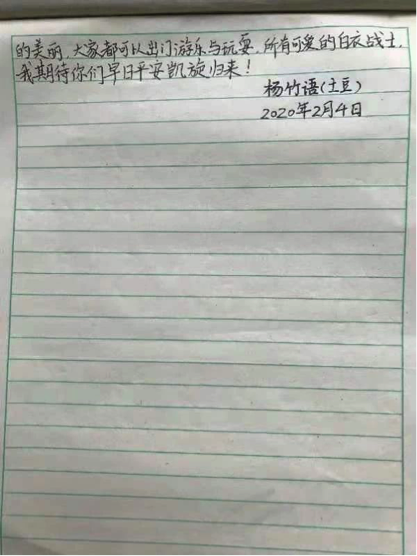 的美丽,大家都可以出门游乐与玩耍,所有可爱的白衣战士,
我期待你们早日平安凯旋归来!
杨竹语(土豆)
2020年2月4日